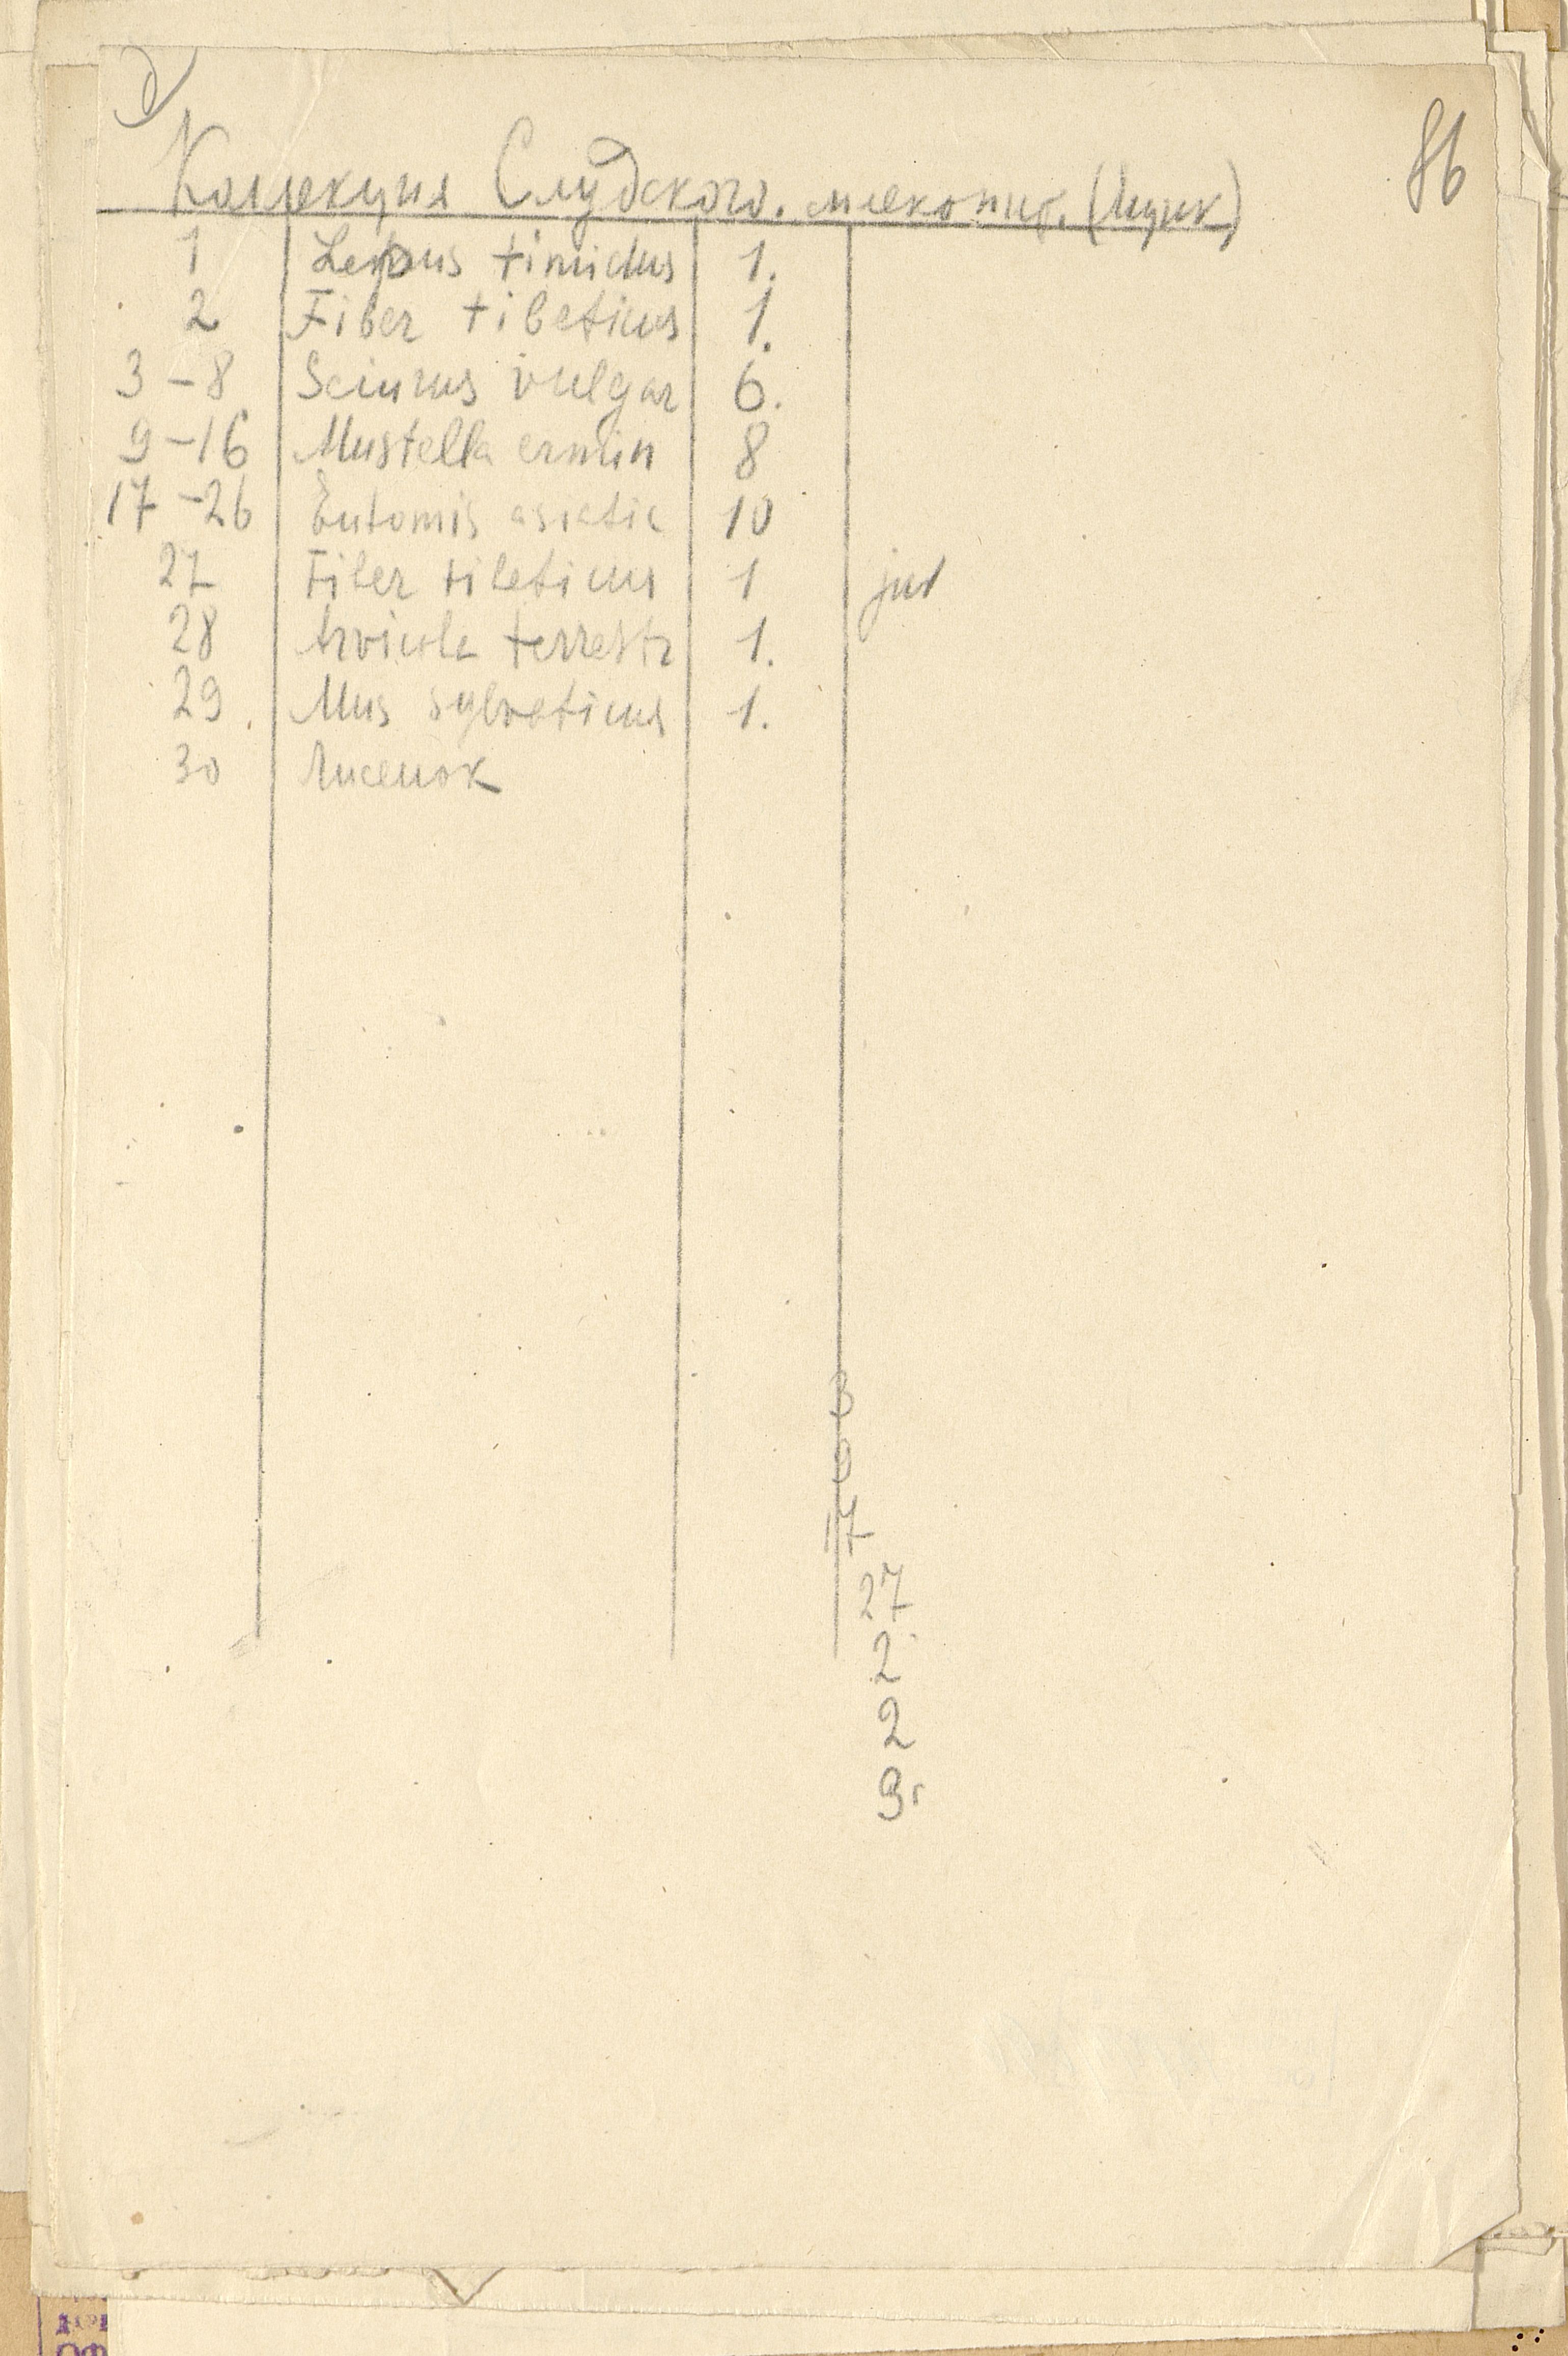 86
Коллекция Слудского. млекопит.
1 Lepus timidus 1.
2 Fiber tibeticus 1.
3-8 Sciurus vulgar 6.
9-16 Mustella ermin 8
17-26 Eutomis asiatic 10
27 Fiber tibeticus 1 juv
28 Arvicola terrestr 1.
29. Mus sylvaticus 1.
30 Лисенок
3
9
17
27
2
2
9